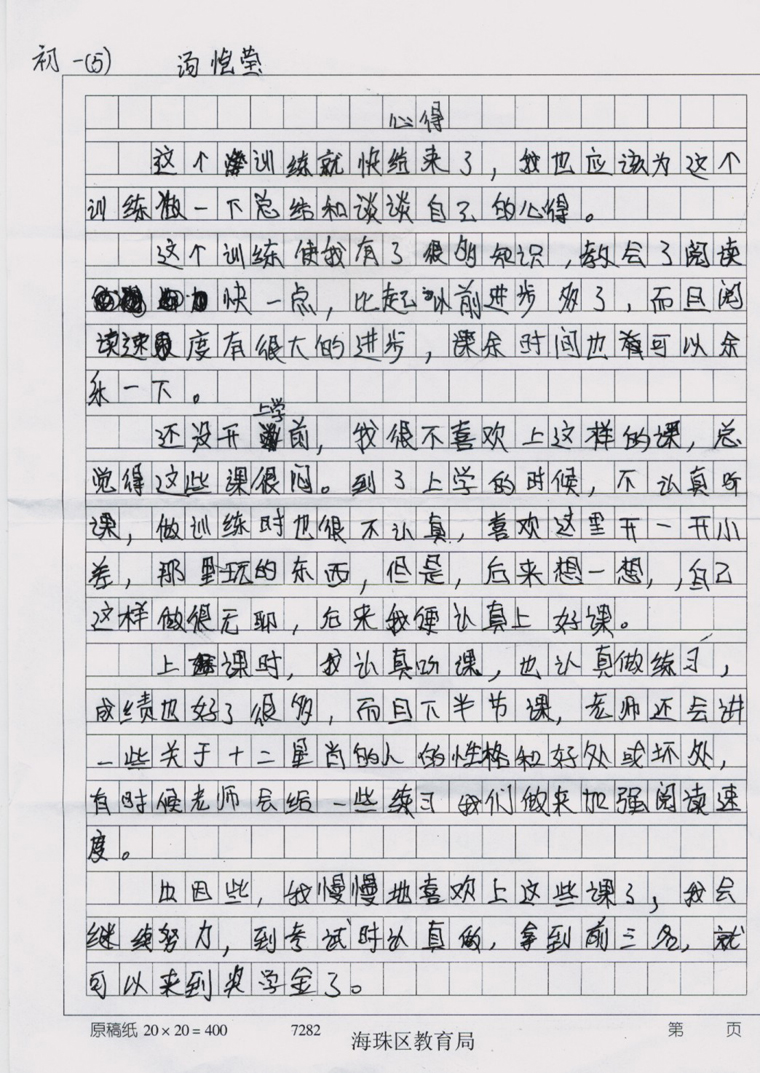 初一(5) 汤恺莹
心得
这个训练就快结来了，我也应该为这个
训练做一下总结和谈谈自己的心得。
这个训练使我有了很多知识，教会了阅读
快一点，比起以前进步多了，而且阅
读速度有很大的进步，课余时间也有可以余
乐一下。
还没开上学前，我很不喜欢上这样的课，总
觉得这些课很闷。到了上学的时候，不认真听
课，做训练时也很不认真，喜欢这里开一开小
差，那里玩的东西，但是，后来想一想，，自己
这样做很无聊，后来我便认真上好课。
上课时，我认真听课，也认真做练习，
成绩也好了很多，而且下半节课，老师还会讲
一些关于十二星肖的人的性格和好处或坏处，
有时候老师会给一些练习我们做来加强阅读速
度。
因些，我慢慢地喜欢上这些课了，我会
继续努力，到考试时认真做，拿到前三名，就
可以来到奖学金了。
原稿纸 20×20=400 7282 海珠区教育局 第 页